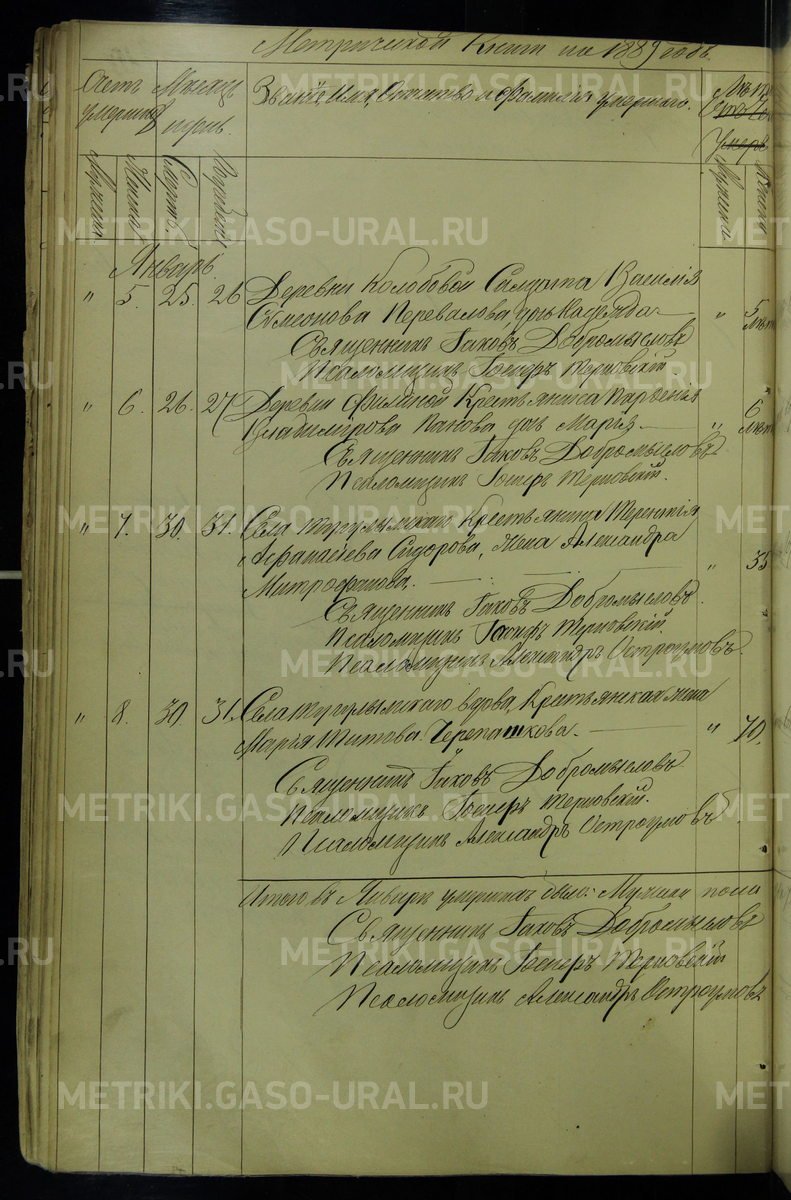 Метрической Книги на 1889 годъ.
Счетъ умершихъ
Мѣсяцъ и день.
Званіе, Имя, Отчество и Фамилія умершаго.
Мужеска Женска Смерти Погребенія
Мужска Женска
Январь.
" 5. 25. 26 Деревни Колобовой Солдата Василія " 5 лѣтъ
Симеонова Перевалова дочь
Священникъ Іаковъ Добромысловъ
Псаломщикъ Іосифъ Терновскій
" 6. 26. 27 Деревни Филиной Крестьянина " 6 лѣтъ
Владимірова Панова дочь Марія
Священникъ Іаковъ Добромысловъ
Псаломщикъ Іосифъ Терновскій.
" 7. 30. 31. Села Тугулымскаго Крестьянина Терентія
Афанасьева Сидорова, жена Александра " 55
Митрофанова.
Священникъ Іаковъ Добромысловъ.
Псаломщикъ Іосифъ Терновскій
Псаломщикъ Александръ Остроумовъ.
" 8. 30 31. Села Тугулымскаго вдова, Крестьянская жена
Марія Титова Черепашкова. " 70.
Священникъ Іаковъ Добромысловъ
Псаломщикъ Іосифъ Терновскій.
Псаломщикъ Александръ Остроумовъ
Итого въ Январѣ умершихъ было: Мужска пола
Священникъ Іаковъ Добромысловъ
Псаломщикъ Іосифъ Терновскій
Псаломщикъ Александръ Остроумовъ
METRIKI.GASO-URAL.RU